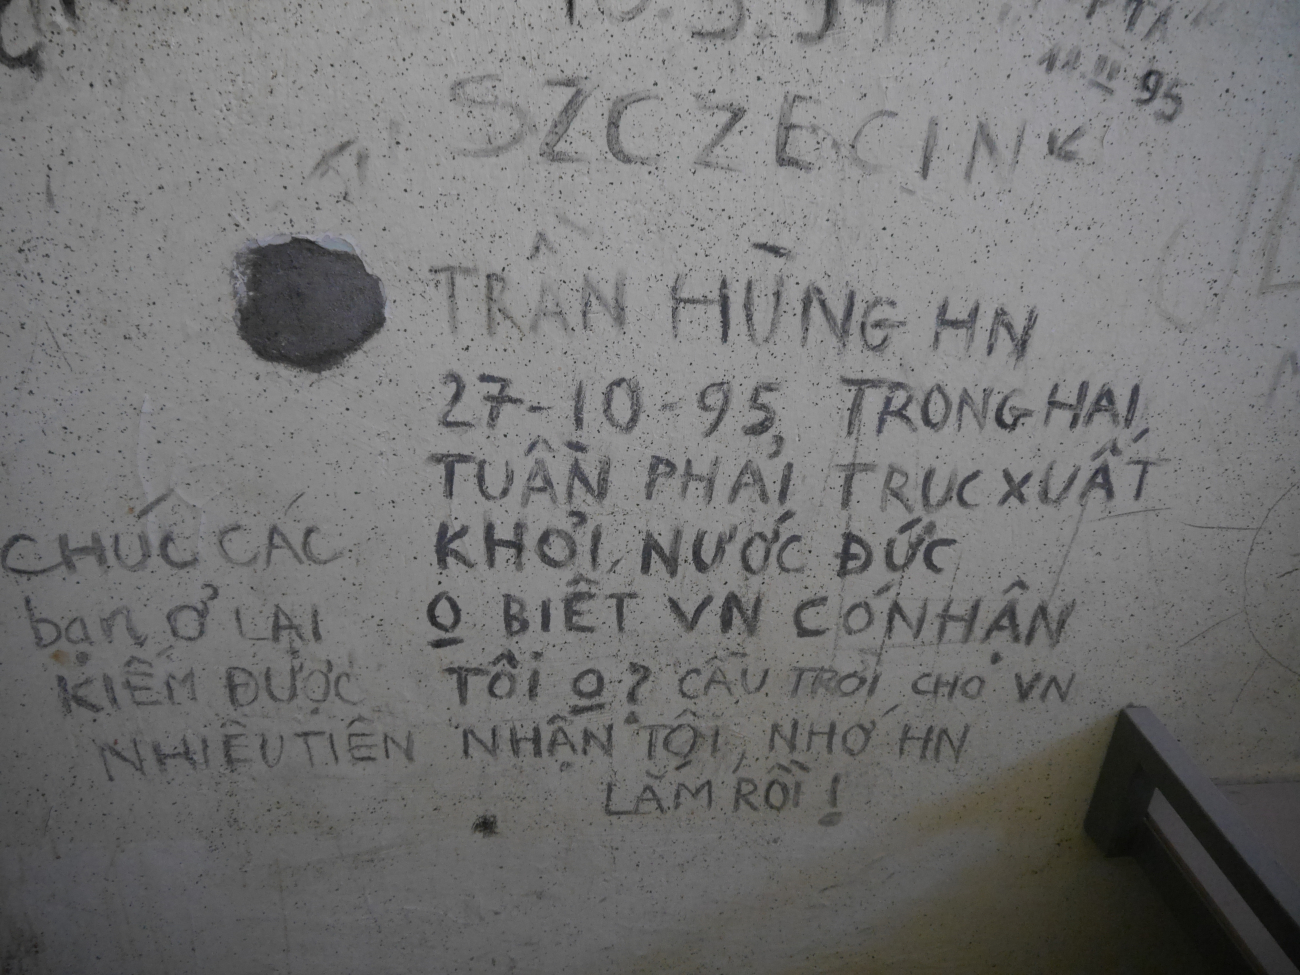 10.5.94
PTA
11.II 95
SZCZECIN K
TRẦN HÙNG HN
27-10-95, TRONG HAI
TUẦN PHẢI TRỤC XUẤT
KHỎI NƯỚC ĐỨC
O BIẾT VN CÓ NHẬN
TÔI O? CẦU TRỜI CHO VN
NHẬN TÔI, NHỚ HN
LẮM RỒI!
CHÚC CÁC
bạn Ở LẠI
KIẾM ĐƯỢC
NHIỀU TIỀN